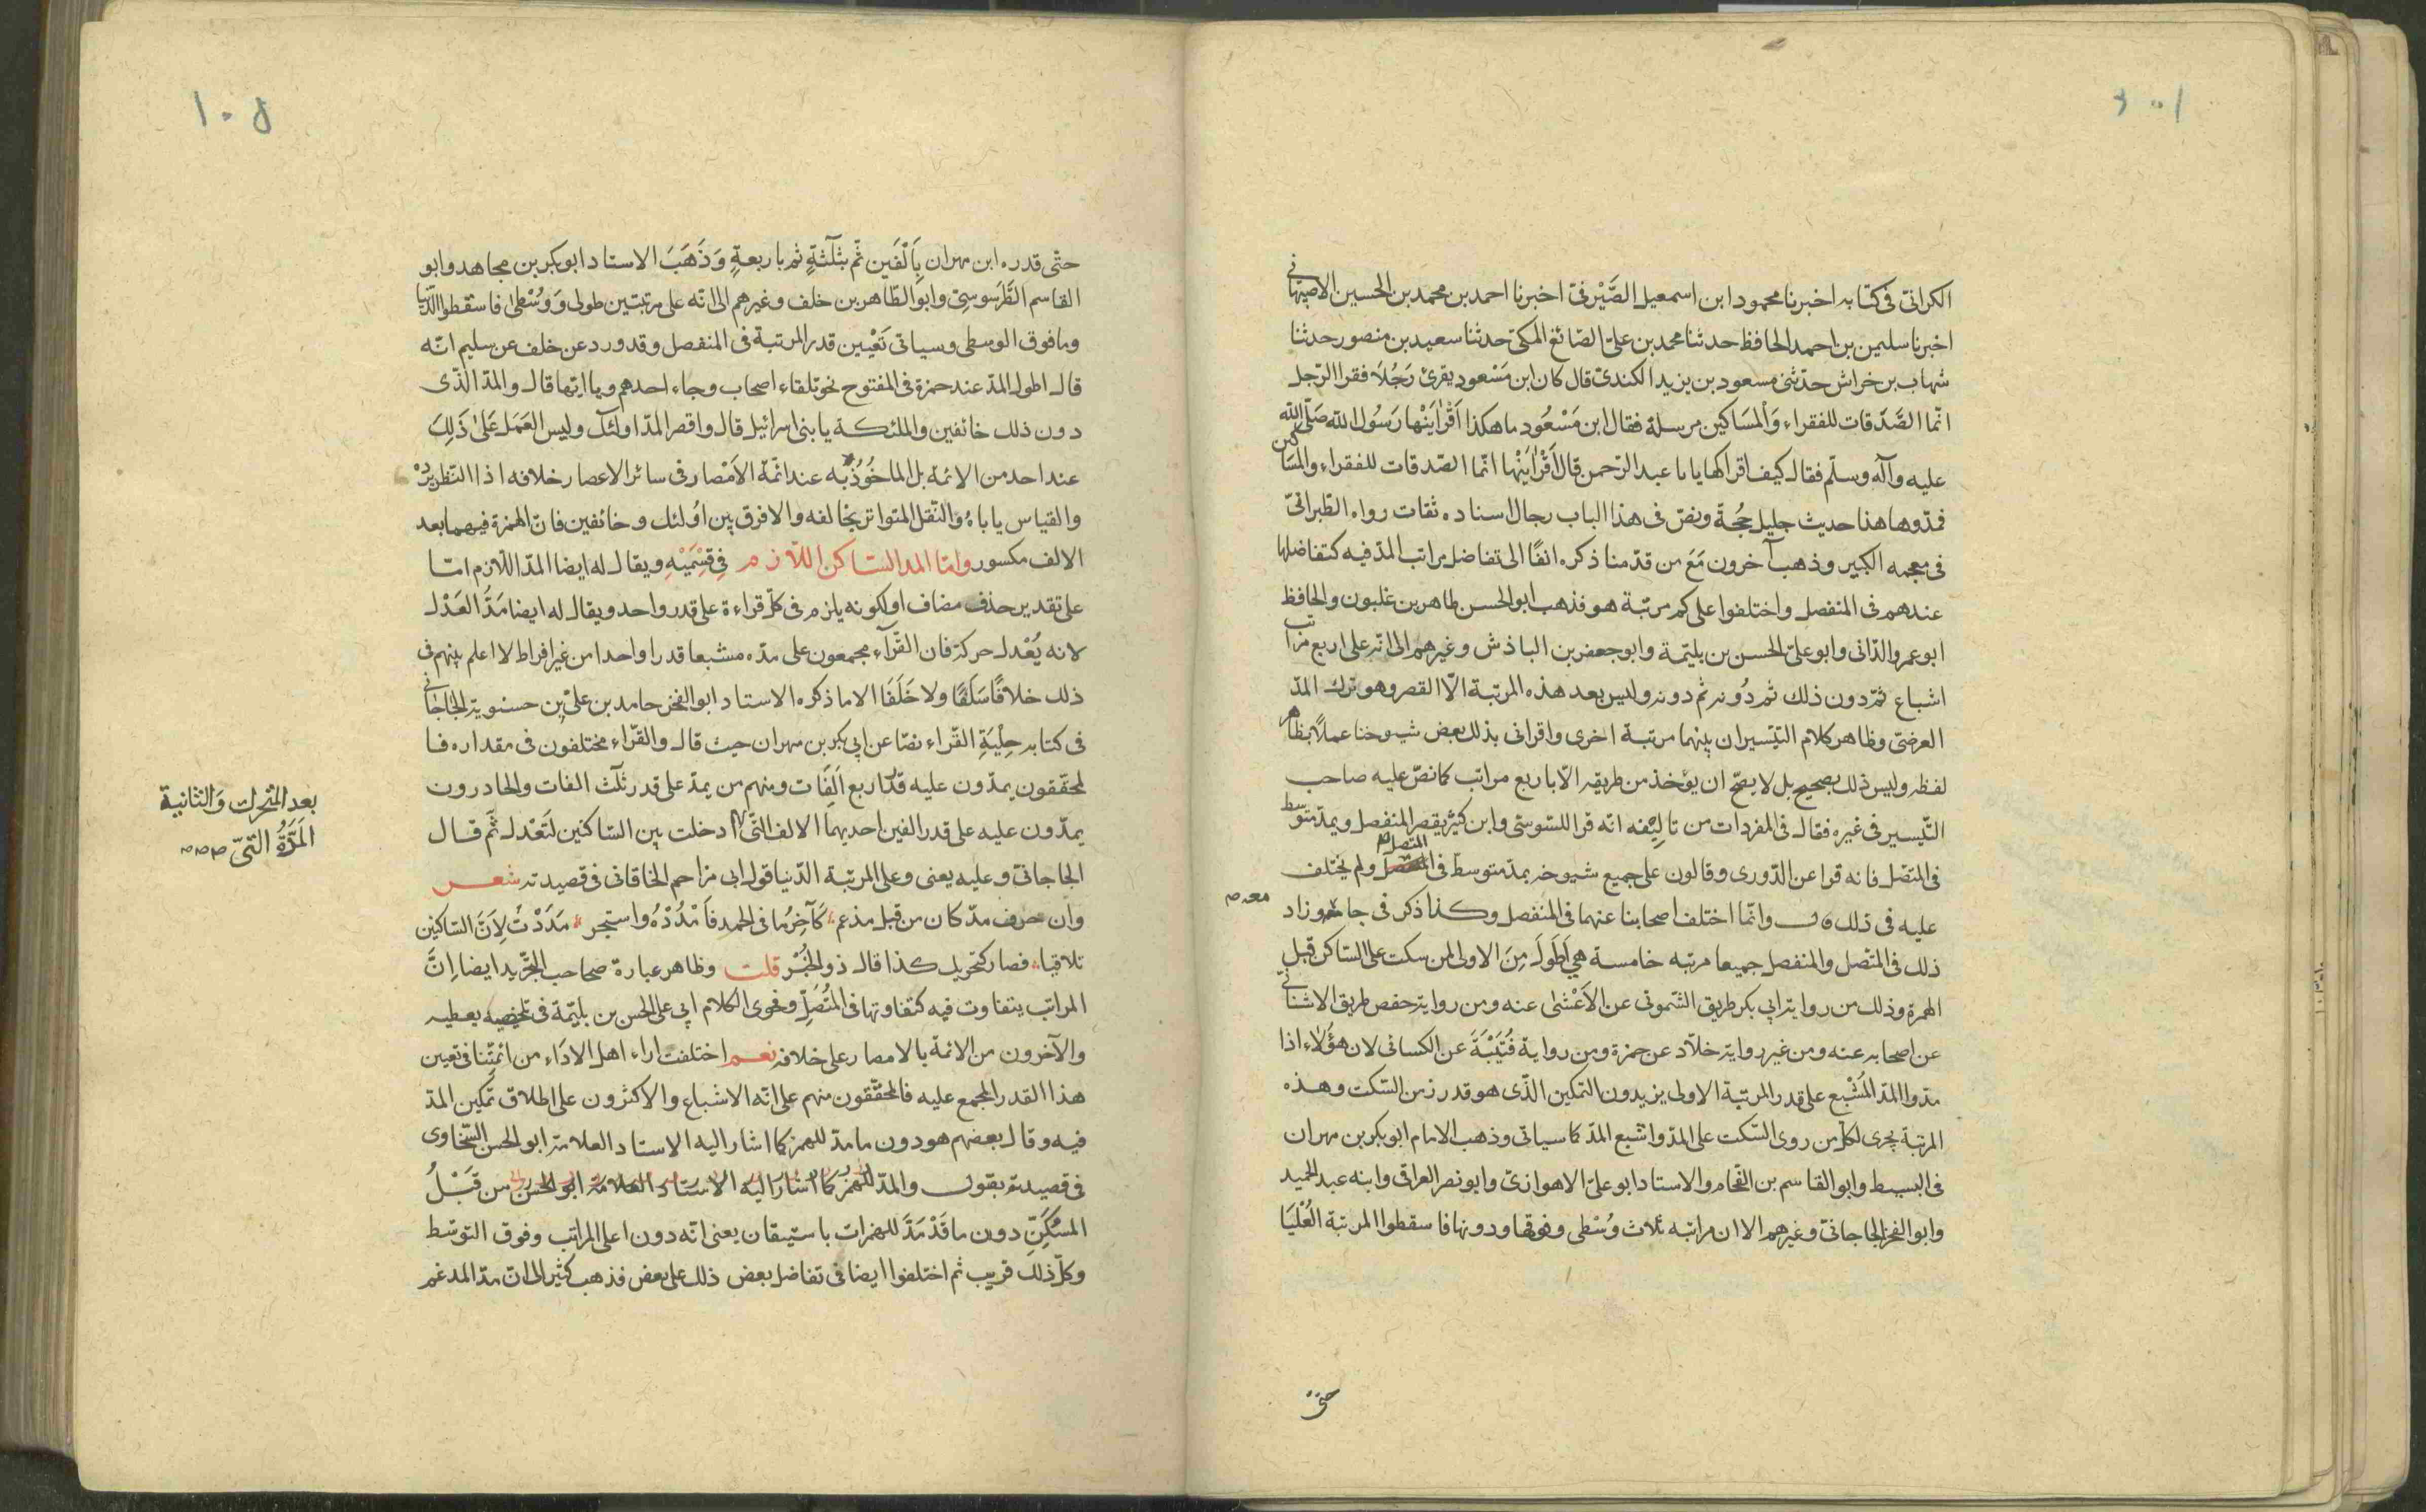 ١٠٤
الكرانىّ فى كتابه اخبرنا محمود ابن اسمعيل الصَّيْرفىّ اخبرنا احمد بن محمد بن الحسين الاصبهانى
اخبرنا سليمن بن احمد الحافظ حدثنا محمد بن علىّ الصّائغ المكى حدثنا سعيد بن منصور حدثنا
شهاب بن خراش حدّثنى مسعود بن يزيد الكندىّ قال كان ابن مَسْعود يقرئ رَجُلاً فقرا الرّجل
انّما الصَّدَقات للفقراء وَالْمسَاكين مرسلة فقال ابن مَسْعُود ما هكذا اَقْرَأَنيْها رَسُول الله صَلّى الله
عليه وآله وسلّم فقال كيف اقراكها يا با عبد الرّحمن قال اَقْرَأَنيْها انّما الصّدقات للفقراء والمسَاكين
فمدّوها هذا حديث جليل حُجة ونصّ فى هذا الباب رجال اسناده ثقات رواه الطّبرانىّ
فى معجمه الكبير وذهب آخرون مَعَ من قدّمنا ذكره انفًا الى تفاضل مراتب المدّ فيه كتفاضلها
عندهم فى المنفصل واختلفوا على كم مرتبة هو فذهب ابو الحسن طاهر بن غلبون والحافظ
ابو عمرو الدّانى وابو علىّ الحسن بن بليّمة وابو جعفر بن الباذش وغيرهم الى انّه على اربع مراتب
اشباع ثمّ دون ذلك ثم دُونه ثم دونه وليس بعد هذه المرتبة الّا القصر وهو ترك المدّ
العرضىّ وظاهر كلام التيّسير ان بينهما مرتبة اخرى واقرانى بذلك بعض شيوخنا عملاً بظاهر
لفظه وليس ذلك بصحيح بل لا يصحّ ان يؤخذ من طريقه الّا باربع مراتب كما نصّ عليه صاحب
التّيسير فى غيره فقال فى المفردات من تاليفه انه قرا للسّوسى وابن كثير بقصر المنفصل وبمدّ متوسط
فى المتصّل فانه قرا عن الدّورى وقالون على جميع شيوخه بمدّ متوسطّ فى المتصل ولم يختلف
عليه فى ذلك قال وانّما اختلف اصحابنا عنهما فى المنفصل وكذا ذكر فى جامعه وزاد
ذلك فى المتّصل والمنفصل جميعا مرتبه خامسة هى اَطْوَلَ مِنَ الاولى لمن سكت على السّاكن قبل
الهمزة وذلك من رواية ابى بكر طريق الشّمونى عن الاَعْشىٰ عنه ومن رواية حفص طريق الاشنانىّ
عن اصحابه عنه ومن غير رواية خلاّد عن حمزة ومن رواية قُتَيْبَةَ عن الكسائى لان هؤُلاء اذا
مدّوا المدّ المُشْبع على قدر المرتبة الاولى يزيدون التمكين الذّى هو قدر زمن السّكت وهذه
المرتبة يجرى لكلّ من روى السّكت على المدّ واشبع المدّ كما سياتى وذهب الامام ابو بكر بن مهران
فى البسيط وابو القاسم بن الفّحام والاستاد ابو علىّ الاهوازىّ وابو نصر العراقى وابنه عبد الحميد
وابو الفخر الجاجانىّ وغيرهم الا ان مراتبه ثلاث وُسْطى وفوقها ودونها فاسقطوا المرتبة العُلْيَا
حتى
معه
١٠٥
حتّى قدره ابن مهران بِاَلْفَين ثّم بثلٰثةٍ ثم باربعةٍ وَذَهَبَ الاستاد ابو بكر بن مجاهد وابو
القاسم الطَّرَسوسِىّ وابو الطّاهر بن خلف وغيرهم الى انّه على مرتبتين طولى وَوُسْطىٰ فاسقطوا الدّنيا
وما فوق الوسطى وسياتى تَعْيين قدر المرتبة فى المنفصل وقد ورد عن خلف عن سليم انّه
قال اطول المدّ عند حمزة فى المفتوح نحو تلقاء اصحاب وجاء احدهم ويا ايّها قال والمدّ الذّى
دون ذلك خائفين والملئكة يا بنى اسرائيل قال واقصر المدّ اولئك وليس العَمَل عَلىٰ ذَلِكَ
عند احد من الائمة بل الماخُوُذ به عند ائمّة الاَمْصار فى سائر الاعصار خلافه اذ النّظر يردّ
والقياس ياباهُ والنّقل المتواتر يخالفه والا فرق بين اُولئك وخائفين فانّ الهمزة فيهما بعد
الالف مكسور وامّا المد السّاكن اللاّزم فِى قِسْمَيْهِ ويقال له ايضا المدّ اللاّزم امّا
على تقدير حذف مضاف او لكونه يلزم فى كلّ قراءة على قدر واحد ويقال له ايضا مَدُّ العَدْل
لانه يُعْدل حركة فان القّرآء مجمعون على مدّه مشبعا قدرا واحدا من غير افراط لا اعلم بينهم فى
ذلك خلافًا سَلَفًا ولا خَلَفَا الا ما ذكره الاستاد ابو الفخر حامد بن علىّ بن حسنويه الجَاجَانى
فى كتابه حِلْيَةِ القّراء نصّا عن ابى بكر بن مهران حيث قال والقرّاء مختلفون فى مقداره فا
لمحقّقون يمدّون عليه قدر اربع اَلَفِات ومنهم من يمدّ على قدر ثلٰث الفات والحادرون
يمدّون عليه على قدر الفين احديهما الالف التّى ادخلت بين السّاكنين لتَعْدل ثّم قال
بعد المتحرك وَالثانية
المَدَّةُ التىّ
الجاجانىّ وعليه يعنى وعلى المرتبة الدّنيا قول ابى مزاحم الخاقانى فى قصيدته شعر
وان حرف مدّ كان من قبل مدغم كَآخِرُما فى الحمد فَاَمْدُدْهُ واستجر مَدَدْتَ لِاَنَّ السّاكنين
تلاقيا فصار كتحريك كذا قال ذو الخُبْر قلت وظاهر عبارة صاحب التّجريد ايضا اِنَّ
المراتب يتفاوت فيه كتفاوتها فى المُتّصَلِ وفحوى الكلام ابى على الحسن بن بليّمة فى تلخيصه يعطيه
والآخرون من الائمة بالامصار على خلافه نعم اختلفت اراء اهل الادَاء من ائمتّنا فى تعين
هذا القدر المجمع عليه فالمحّققون منهم على انّه الاشباع والاكثرون على اطلاق تمكين المدّ
فيه وقال بعضهم هو دون ما مدّ للهمز كما اشار اليه الاستاد العلامة ابو الحسن السّخاوى
فى قصيدته بقول والمدّ للهمز كما اشار اليه الاستاد العلامة ابو الحسن من قَبْلُ
المسْكَّنِ دون ما قَدْ مَدَّ للهمزات باستيقان يعنى انّه دون اعلى المراتب وفوق التوسّط
وكلّ ذلك قريب ثم اختلفوا ايضا فى تفاضل بعض ذلك على بعض فذهب كثير الى انّ مدّ المدغم